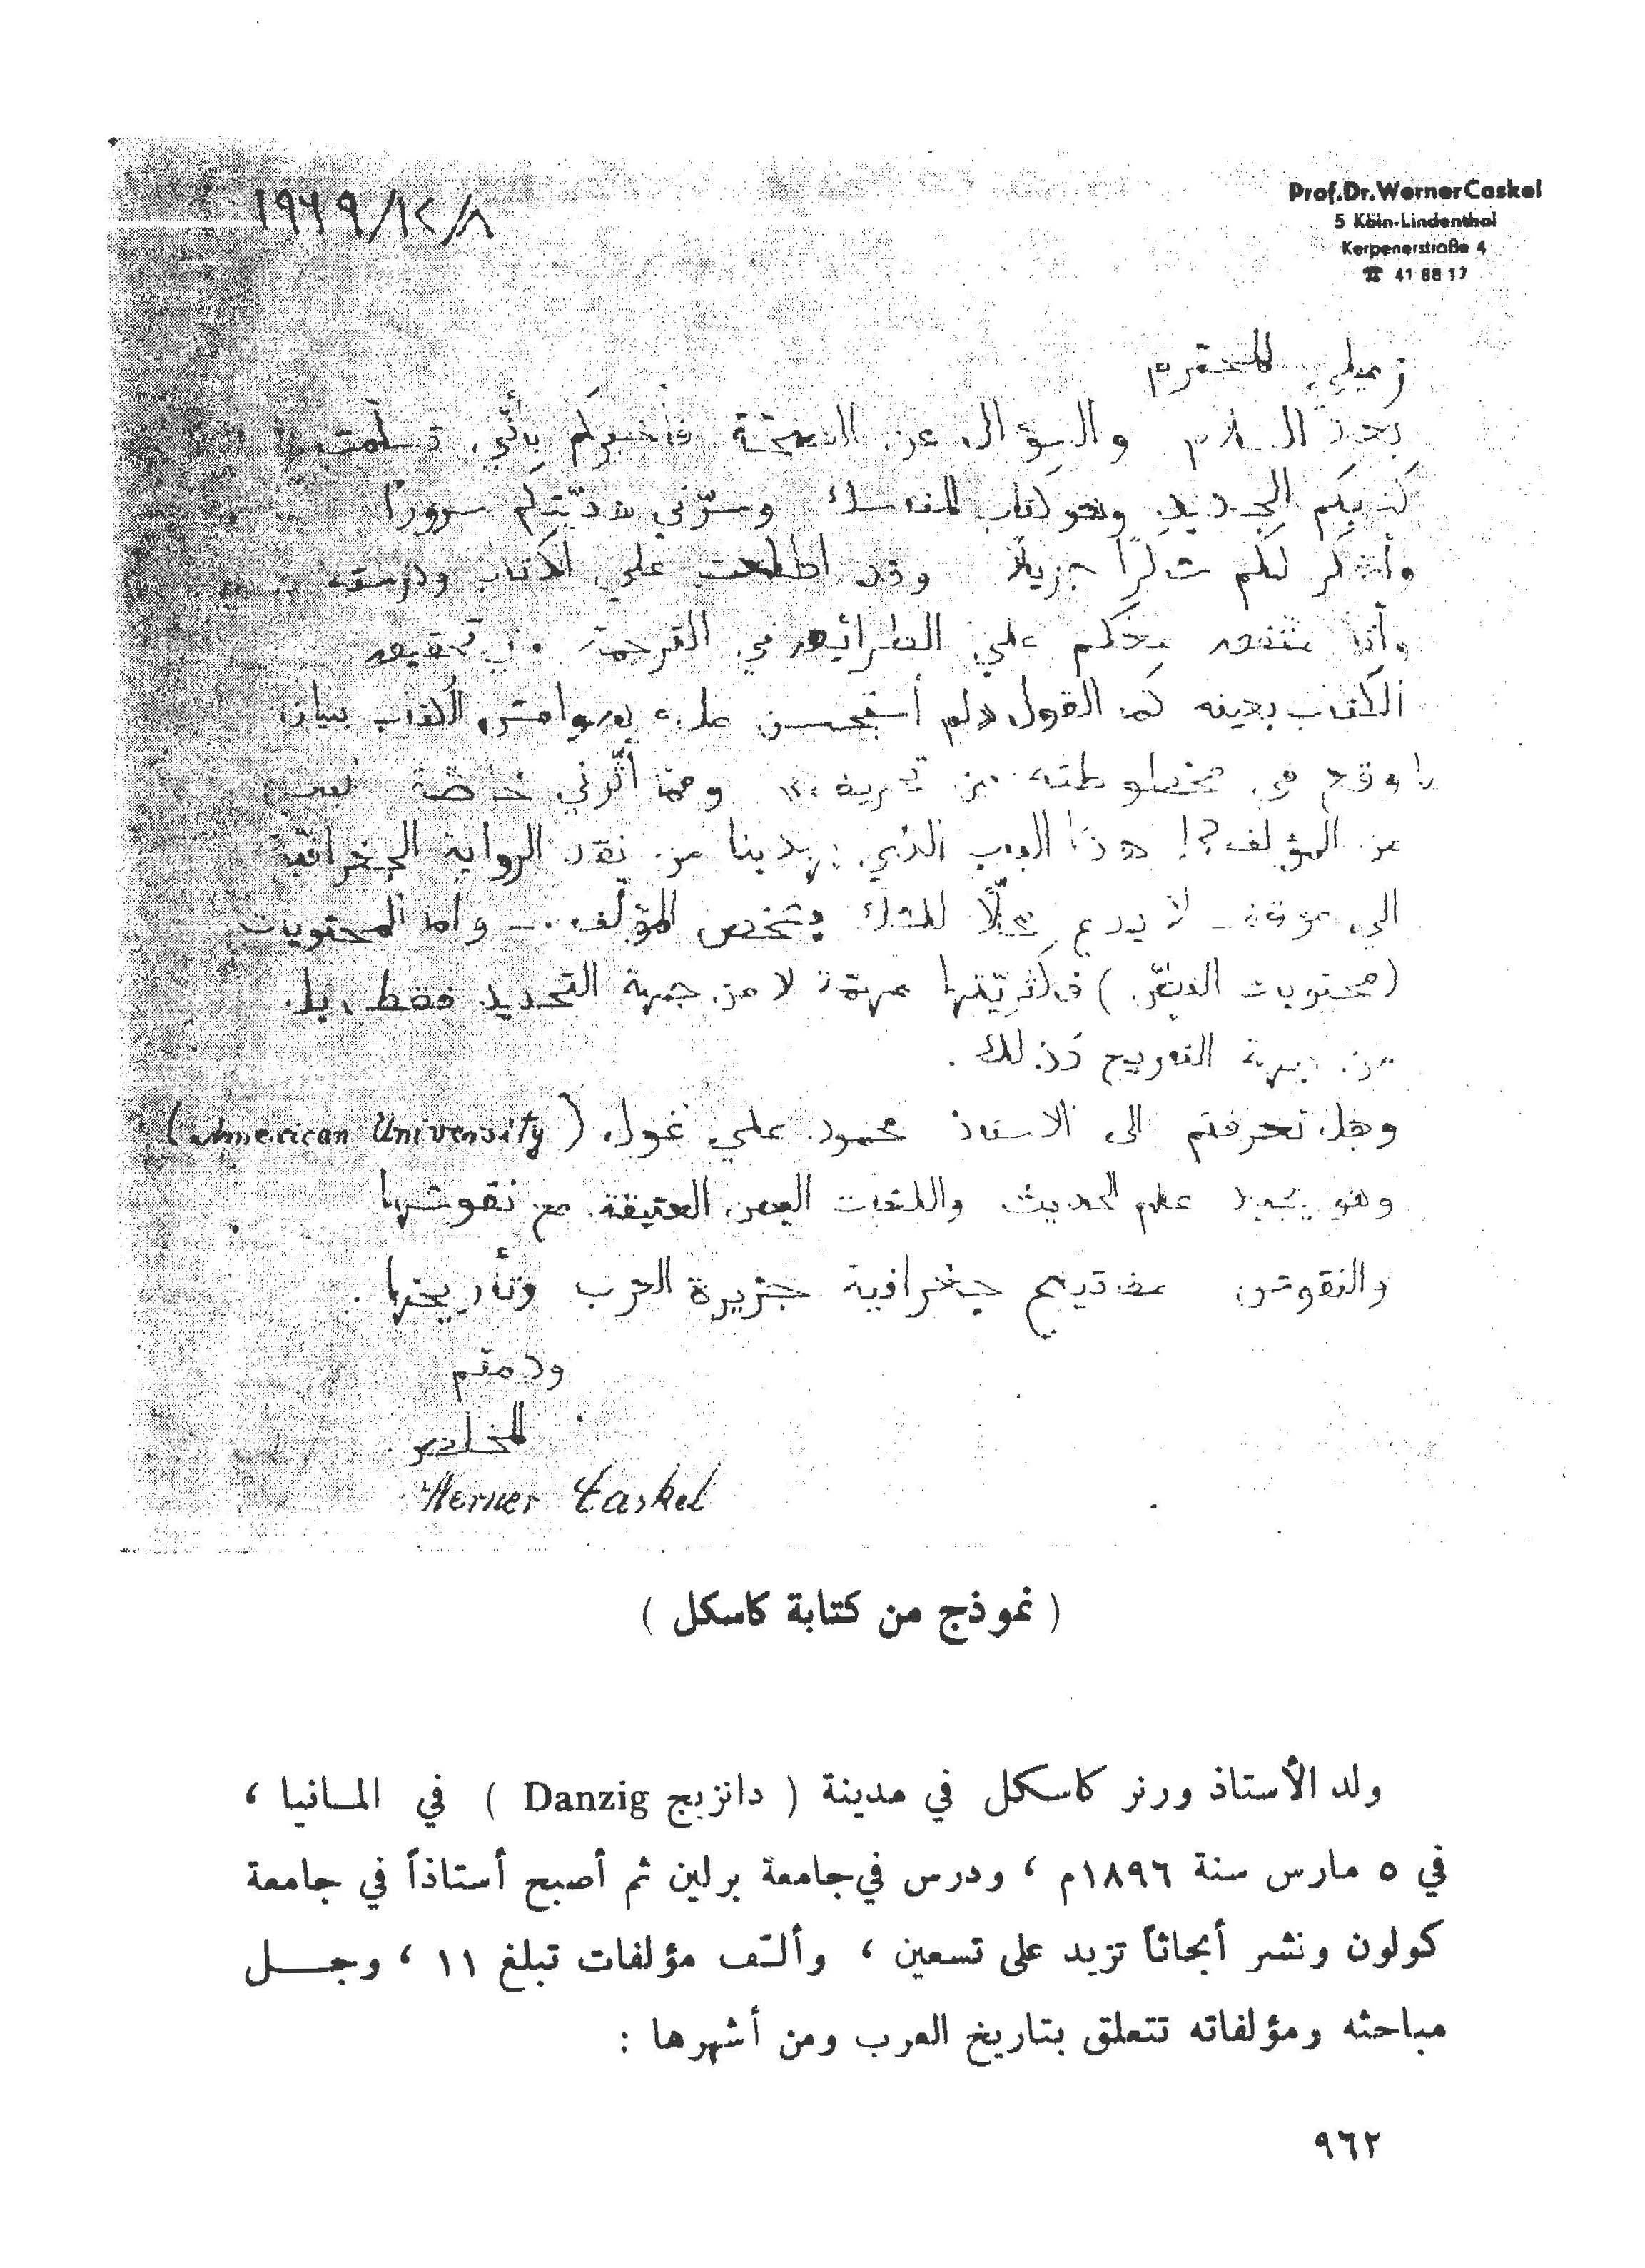 ١٩٦٩/١٢/٨
Prof.Dr.Werner Caskel
5 Köln-Lindenthal
Kerpenerstraße 4
☎ 41 88 17
زميلي المحترم
بعد السلام والسؤال عن الصحّة فأخبركم بأنّي تسلّمت
كتابكم الجديد وهو كتاب المناسك وسرّني هديّتكم سرورًا
وأشكر لكم شكرًا جزيلًا وقد اطلعت على الكتاب ودرسته
وأنا متفق معكم على الطرائق في الترجمة وفي تحقيق
الكتاب بعينه كما القول ولم أستحسن ملء هوامش الكتاب ببيان
ما وقع في مخطوطته من تحريف وممّا أثّرني خاصّة
من المؤلف؟! هذا الباب الذي يهدينا من نقد الرواية الجغرافية
الى لا يدع محلًّا للشك بشخص المؤلّف. وأما المحتويات
(محتويات) فأكثريّتها مهمّة لا من جهة التحديد فقط، بل
من جهة التأريخ كذلك.
وهل تعرفتم الى الاستاذ محمود علي غول (American University)
وهو يجيد علم الحديث واللغات اليمن العتيقة مع نقوشها
والنقوش مفاتيح جغرافية جزيرة العرب وتأريخها.
ودمتم
المخلص
Werner Caskel
( نموذج من كتابة كاسكل )
ولد الأستاذ ورنر كاسكل في مدينة ( دانزيج Danzig ) في المانيا ،
في ٥ مارس سنة ١٨٩٦م ، ودرس في جامعة برلين ثم أصبح أستاذاً في جامعة
كولون ونشر أبحاثاً تزيد على تسعين ، وألّف مؤلفات تبلغ ١١ ، وجل
مباحثه ومؤلفاته تتعلق بتاريخ العرب ومن أشهرها :
٩٦٢